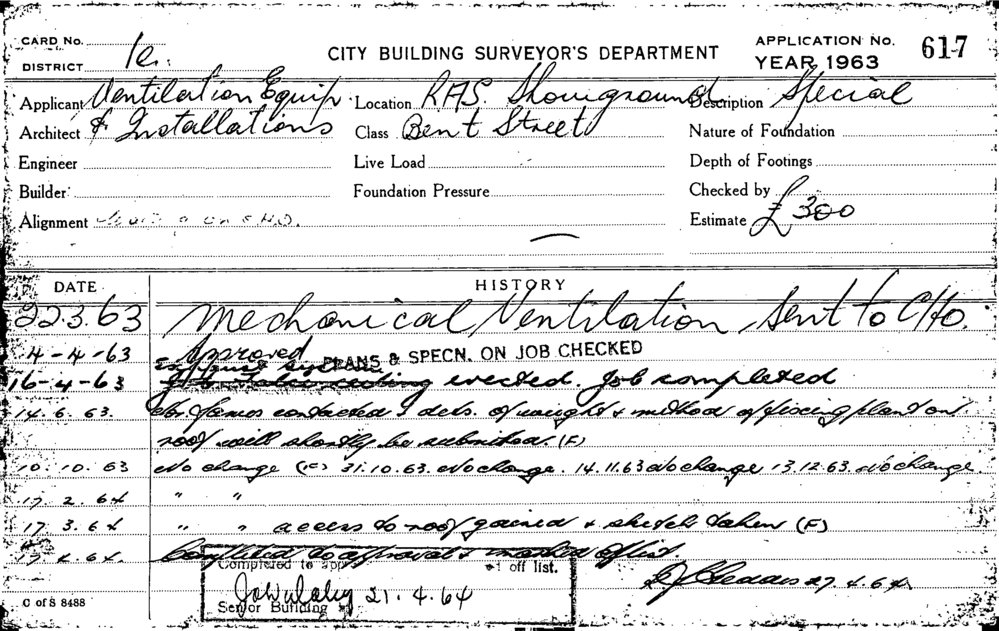 CARD No.
CITY BUILDING SURVEYOR'S DEPARTMENT
APPLICATION No. 617
DISTRICT 1c.
YEAR 1963
Applicant Ventilation Equip Location RAS. Showground Description Special
Architect & Installations Class Bent Street Nature of Foundation
Engineer Live Load Depth of Footings
Builder Foundation Pressure Checked by
Alignment Estimate £300
DATE HISTORY
22.3.63 Mechanical Ventilation Sent to C/Ho.
4-4-63 Approved PLANS & SPECN. ON JOB CHECKED
16-4-63 erected. Job completed
14. 6. 63. Mr. James contacted dets. of weight & method of fixing plant on
roof will shortly be submitted. (F)
10. 10. 63 No change (F) 31.10.63. No change. 14.11.63 No change 13.12.63. No change
17. 2. 64 " "
17. 3. 64 " " access to roof gained & sketch taken (F)
4. 64. Completed to approval & marked off list.
Completed to app off list.
27. 4. 64.
21. 4. 64
Senior Building
C of S 8488